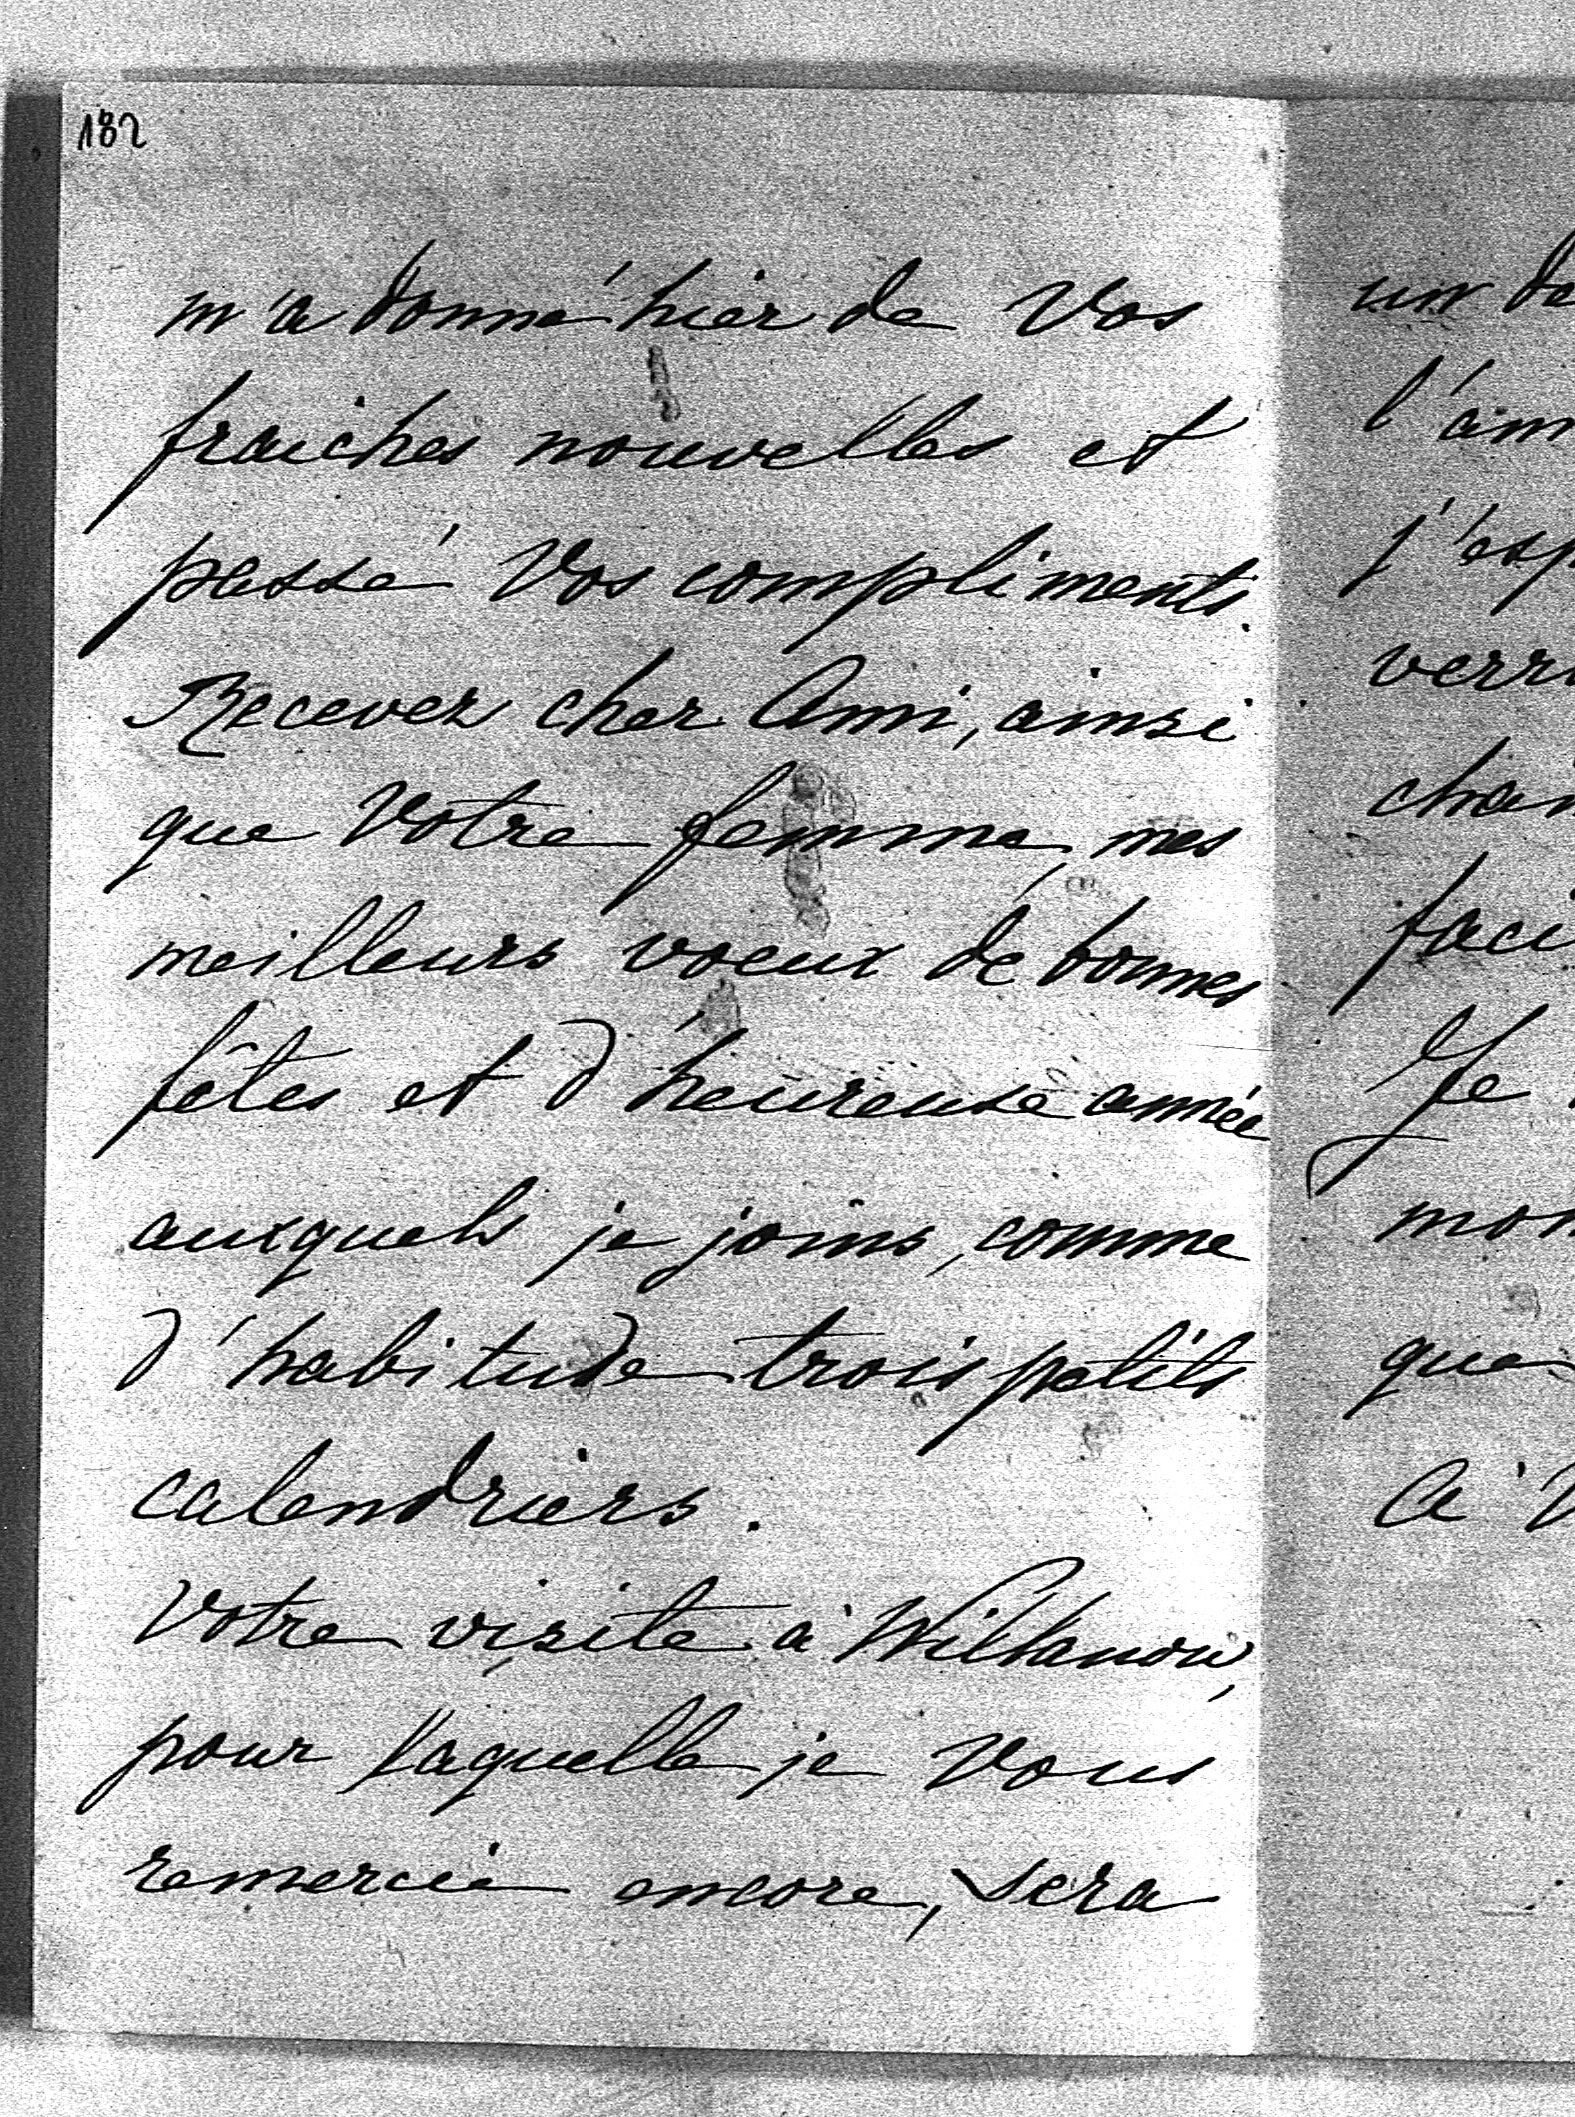 182
m'a donné hier de Vos
fraiches nouvelles et
passé Vos compliments.
Recevez cher Ami, ainsi
que Votre femme, mes
meilleurs voeux de bonnes
fêtes et d'heureuse année
auxquels je joins, comme
d'habitude trois petits
calendriers.
Votre visite à Willanow,
pour laquelle je Vous
remercie encore, sera
un
l'am
j'esp
verr
chan
faci
Je
mon
que
à V